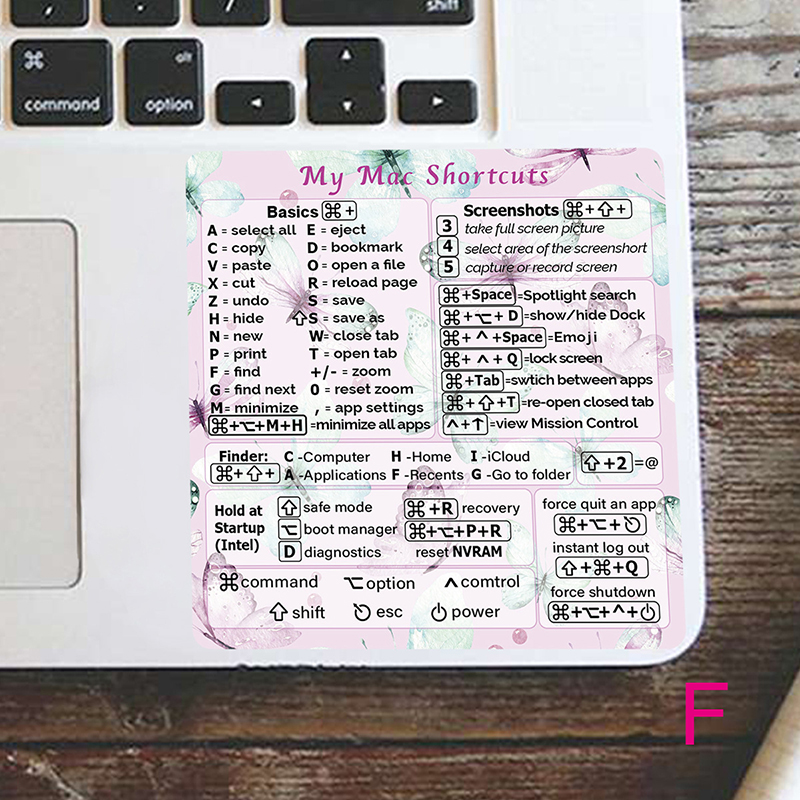 shift
⌘ alt
command option
◄ ▲ ▼ ►
My Mac Shortcuts
Basics ⌘ +
A = select all E = eject
C = copy D = bookmark
V = paste O = open a file
X = cut R = reload page
Z = undo S = save
H = hide ⇧S = save as
N = new W= close tab
P = print T = open tab
F = find +/- = zoom
G = find next 0 = reset zoom
M= minimize , = app settings
⌘+⌥+M+H =minimize all apps
Screenshots ⌘+⇧+
3 take full screen picture
4 select area of the screenshort
5 capture or record screen
⌘+Space=Spotlight search
⌘+⌥+ D =show/hide Dock
⌘+ ^ +Space=Emoji
⌘+ ^ + Q =lock screen
⌘+Tab =swtich between apps
⌘+⇧+T =re-open closed tab
^+↑=view Mission Control
Finder: C -Computer H -Home I -iCloud
⌘+⇧+ A -Applications F -Recents G -Go to folder
⇧+2 =@
Hold at
Startup
(Intel)
⇧ safe mode ⌘+R recovery
⌥ boot manager ⌘+⌥+P+R
D diagnostics reset NVRAM
force quit an app
⌘+⌥+⎋
instant log out
⇧+⌘+Q
force shutdown
⌘+⌥+^+⏻
⌘command ⌥option ^comtrol
⇧shift ⎋ esc ⏻ power
F